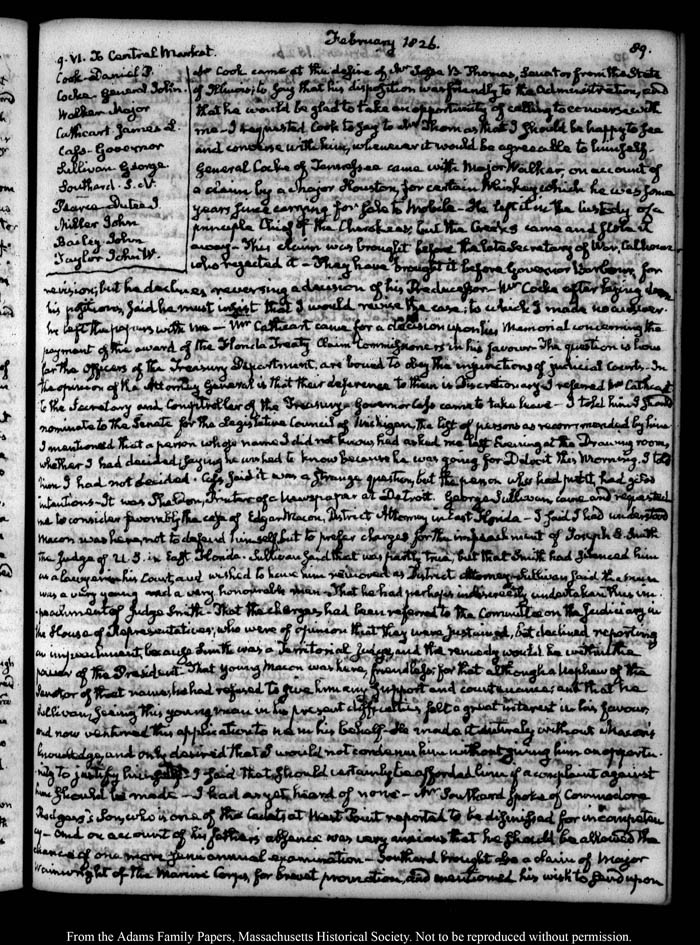 February 1826.
89.
9. VI. To Central Market.
Cook Daniel P.
Cocke. General John.
Walker Major
Cathcart James L.
Cass. Governor
Sullivan George
Southard. S. L.
Pearce Dutee J
Miller John
Bailey John
Taylor John W.
Mr Cook came at the desire of Mr Jesse B Thomas, Senator from the State
of Illinois; to say that his disposition was friendly to the Administration, and
that he would be glad to take an opportunity of calling to converse with
me. I requested Cook to say to Mr Thomas that I should be happy to see
and converse with him, whenever it would be agreeable to himself.
General Cocke of Tennessee came with Major Walker, on account of
a claim by a Major Houston, for certain Whiskey which he was some
years since carrying for sale to Mobile. He left it in the custody of a
principle Chief of the Cherokees, but the Creeks came and stole it
away. This claim was brought before the late Secretary of War, Calhoun
who rejected it. They have brought it before Governor Barbour, for
revision; but he declines reversing a decision of his Predecessor. Mr Cocke after laying down
his positions, said he must insist that I would revise the case; to which I made no answer.
he left the papers with me. Mr Cathcart came for a decision upon his Memorial concerning the
payment of the award of the Florida Treaty Claim Commissioners in his favour. The question is how
far the Officers of the Treasury Department, are bound to obey the injunctions of judicial Courts. In
the opinion of the Attorney General is that their deference to them is Discretionary. I referred Mr Cathcart
to the Secretary and Comptroller of the Treasury. Governor Cass came to take leave. I told him I should
nominate to the Senate for the Legislative Council of Michigan, the list of persons as recommended by him.
I mentioned that a person whose name I did not know had asked me last Evening at the Drawing room,
whether I had decided; saying he wished to know because he was going for Detroit this Morning. I told
him I had not decided. Cass said it was a strange question, but the person who had put it, had good
intentions. It was Sheldon, Printer of a Newspaper at Detroit. George Sullivan came and requested
me to consider favourably the case of Edgar Macon, District Attorney in East Florida. I said I had understood
Macon was here, not to defend himself but to prefer charges for the impeachment of Joseph L. Smith
the Judge of U.S. in East Florida. Sullivan said that was partly true, but that Smith had silenced him
as a lawyer in his Court, and wished to have him removed as District Attorney. Sullivan said the man
was a very young and a very honourable man. That he had perhaps indiscreetly undertaken this im-
peachment of Judge Smith. That the charges had been referred to the Committee on the Judiciary in
the House of Representatives; who were of opinion that they were sustained, but declined reporting
an impeachment, because Smith was a Territorial Judge, and the remedy would be within the
power of the President. That young Macon was here, friendless; for that although a Nephew of the
Senator of that name, he had refused to give him any support and countenance; and that he
Sullivan, seeing this young man in his present difficulties felt a great interest in his favour,
and now ventured this application to me in his behalf. He made it entirely without Macon's
knowledge, and only desired that I would not condemn him without giving him an opportu-
nity to justify himself. I said that should certainly be afforded him if a complaint against
him should be made. I had as yet heard of none. Mr Southard spoke of Commodore
Rodgers's Son, who is one of the Cadets at West Point reported to be dismissed for incompeten
cy. And on account of his father's absence was very anxious that he should be allowed the
chance of one more semi annual examination. Southard brought also a claim of Major
Wainwright of the Marine Corps, for brevet promotion, and mentioned his wish to send upon
From the Adams Family Papers, Massachusetts Historical Society. Not to be reproduced without permission.